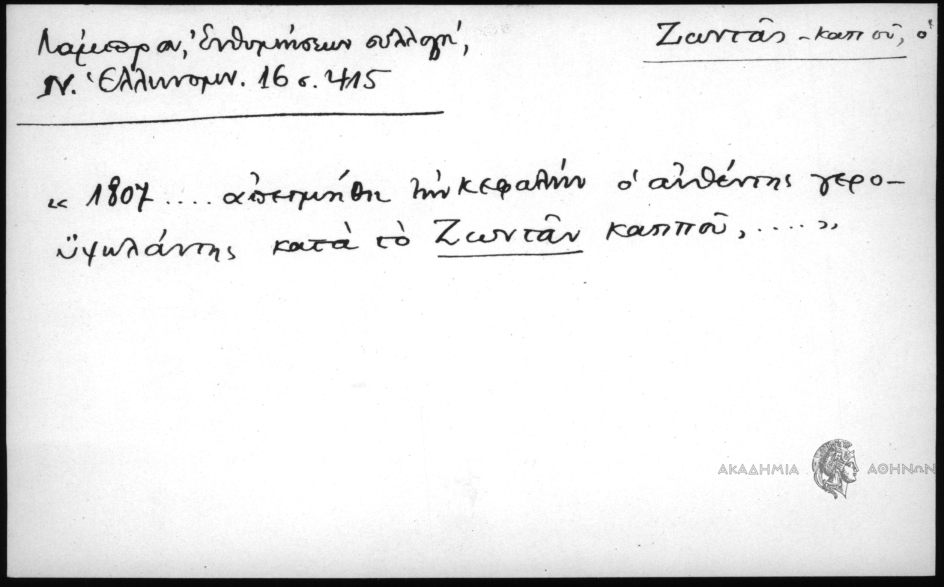 Λάμπρου, Ἐνθυμήσεων συλλογή,
Ν. Ἑλληνομν. 16 σ. 415
Ζωντᾶς - καπποῦ, ὁ
« 1807 .... ἀπετμήθη τὴν κεφαλὴν ὁ αὐθέντης γερο-
ϋψηλάντης κατὰ τὸ Ζωντᾶν καπποῦ, .... »
ΑΚΑΔΗΜΙΑ ΑΘΗΝΩΝ